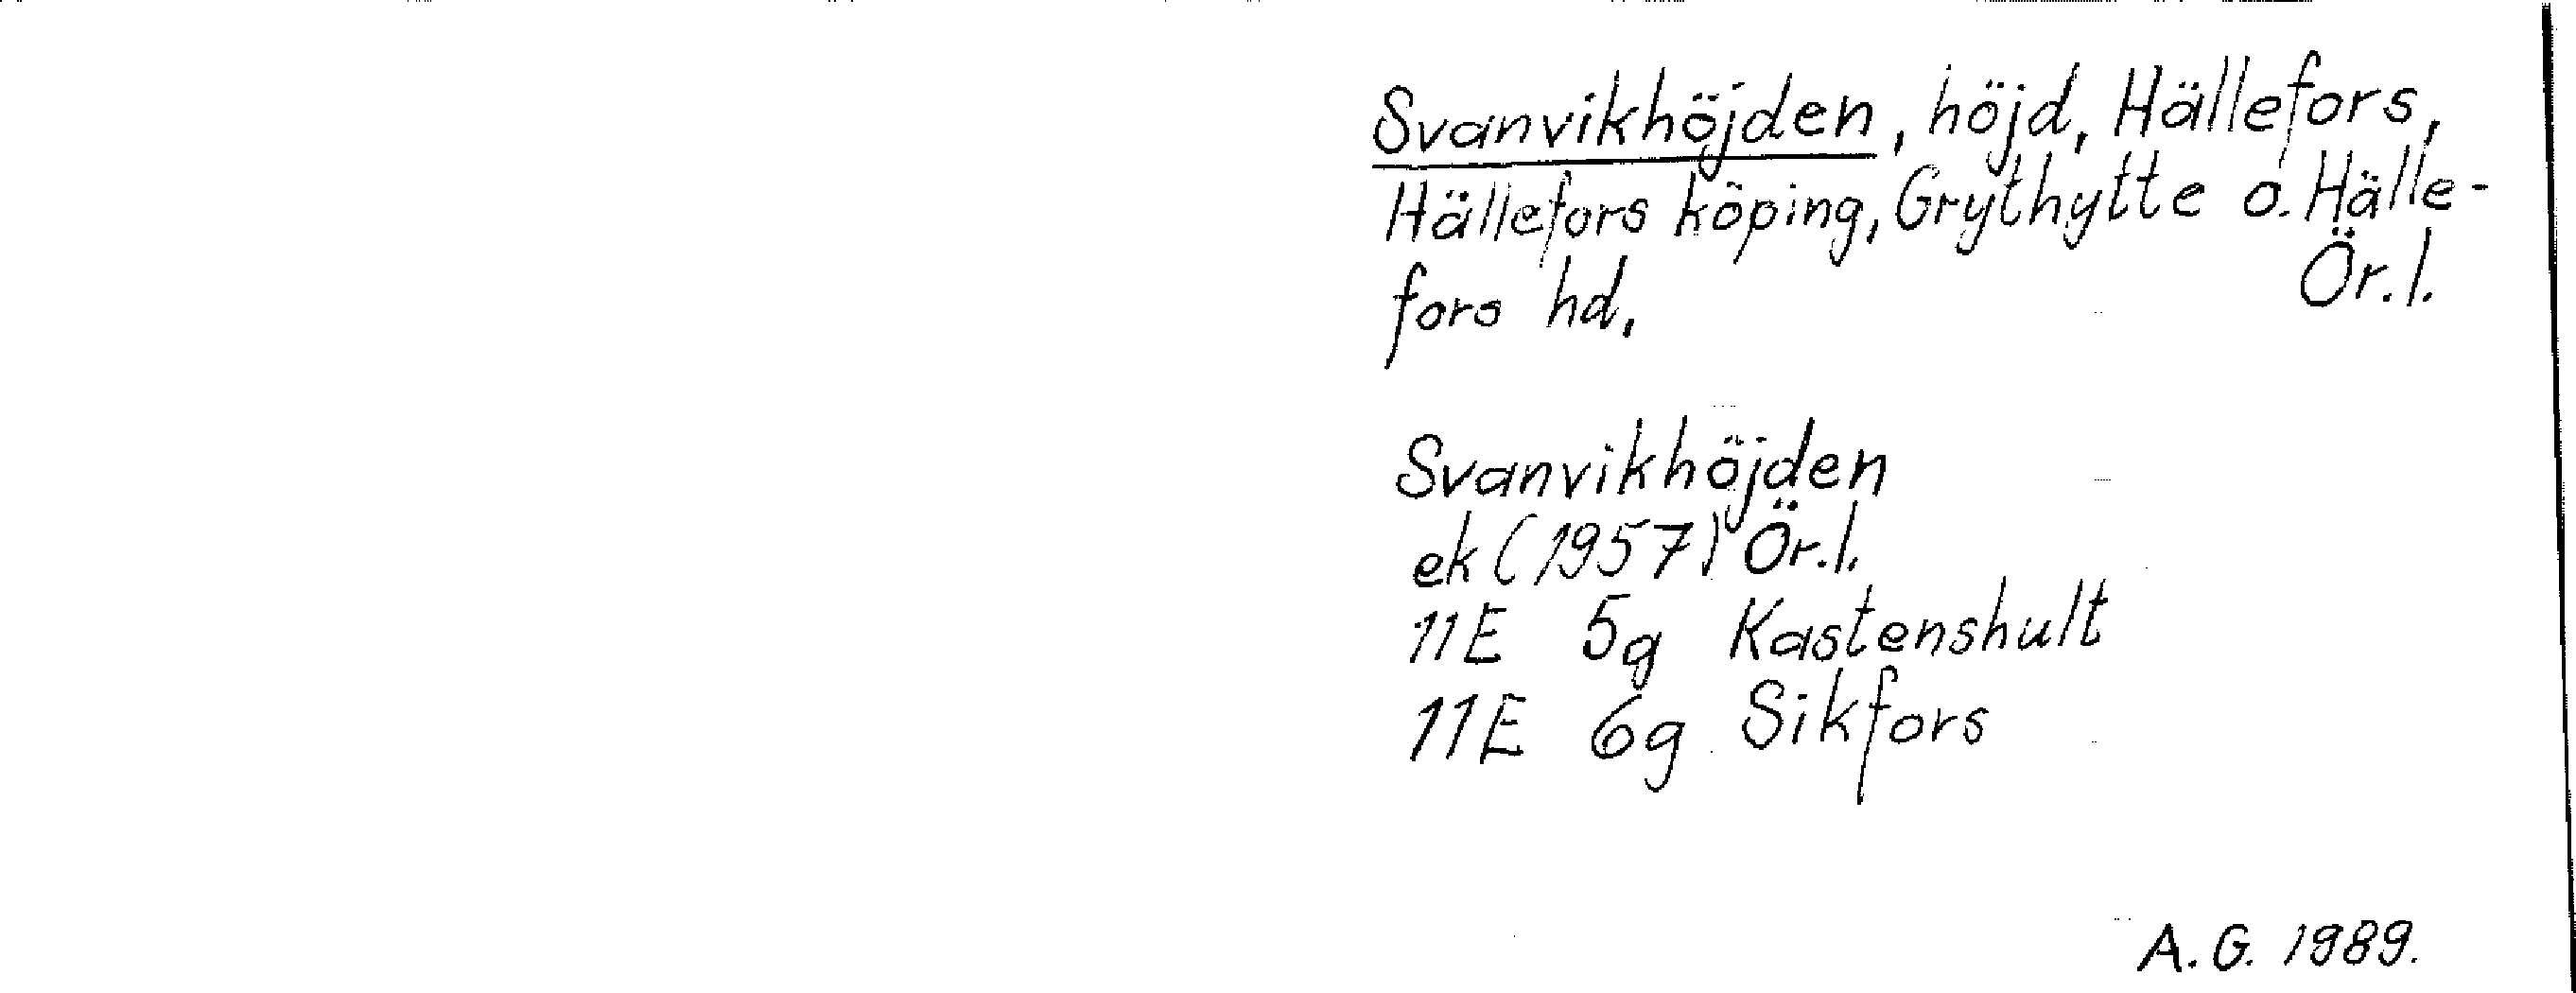 Svanvikhöjden, höjd, Hällefors,
Hällefors köping, Grythytte o. Hälle-
fors hd, Ör.l.
Svanvikhöjden
ek (1957) Ör.l.
11E 5g Kastenshult
11E 6g Sikfors
A.G. 1989.